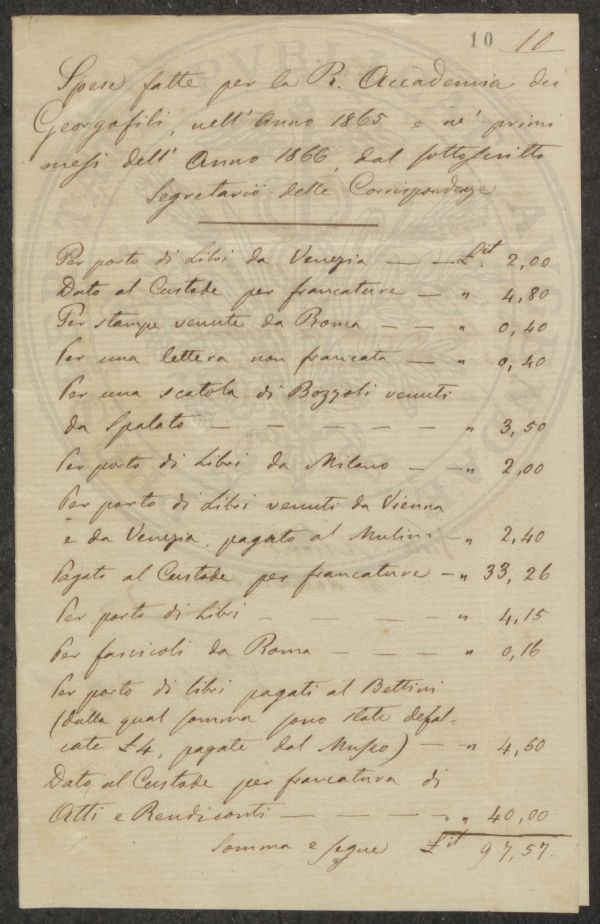 10 10
Spese fatte per la R. Accademia dei
Georgofili, nell'Anno 1865 e ne' primi
mesi dell' Anno 1866, dal sottoscritto
Segretario delle Corrispondenze
Per porto di Libri da Venezia — — £it. 2,00
Dato al Custode per francature — " 4,80
Per stampe venute da Roma — — " 0,40
Per una lettera non francata — " 0,40
Per una scatola di Bozzoli venuti
da Spalato — — — — — — " 3,50
Per porto di Libri da Milano — — " 2,00
Per porto di Libri venuti da Vienna
e da Venezia, pagato al Mulini — " 2,40
Pagato al Custode per francature — " 33,26
Per porto di Libri — — — — " 4,15
Per fascicoli da Roma — — — " 0,16
Per porto di libri pagati al Bettini
(dalla qual somma sono state defal-
cate £4, pagate dal Museo) — " 4,50
Dato al Custode per francatura di
Atti e Rendiconti — — — — " 40,00
Somma e segue £it 97,57.